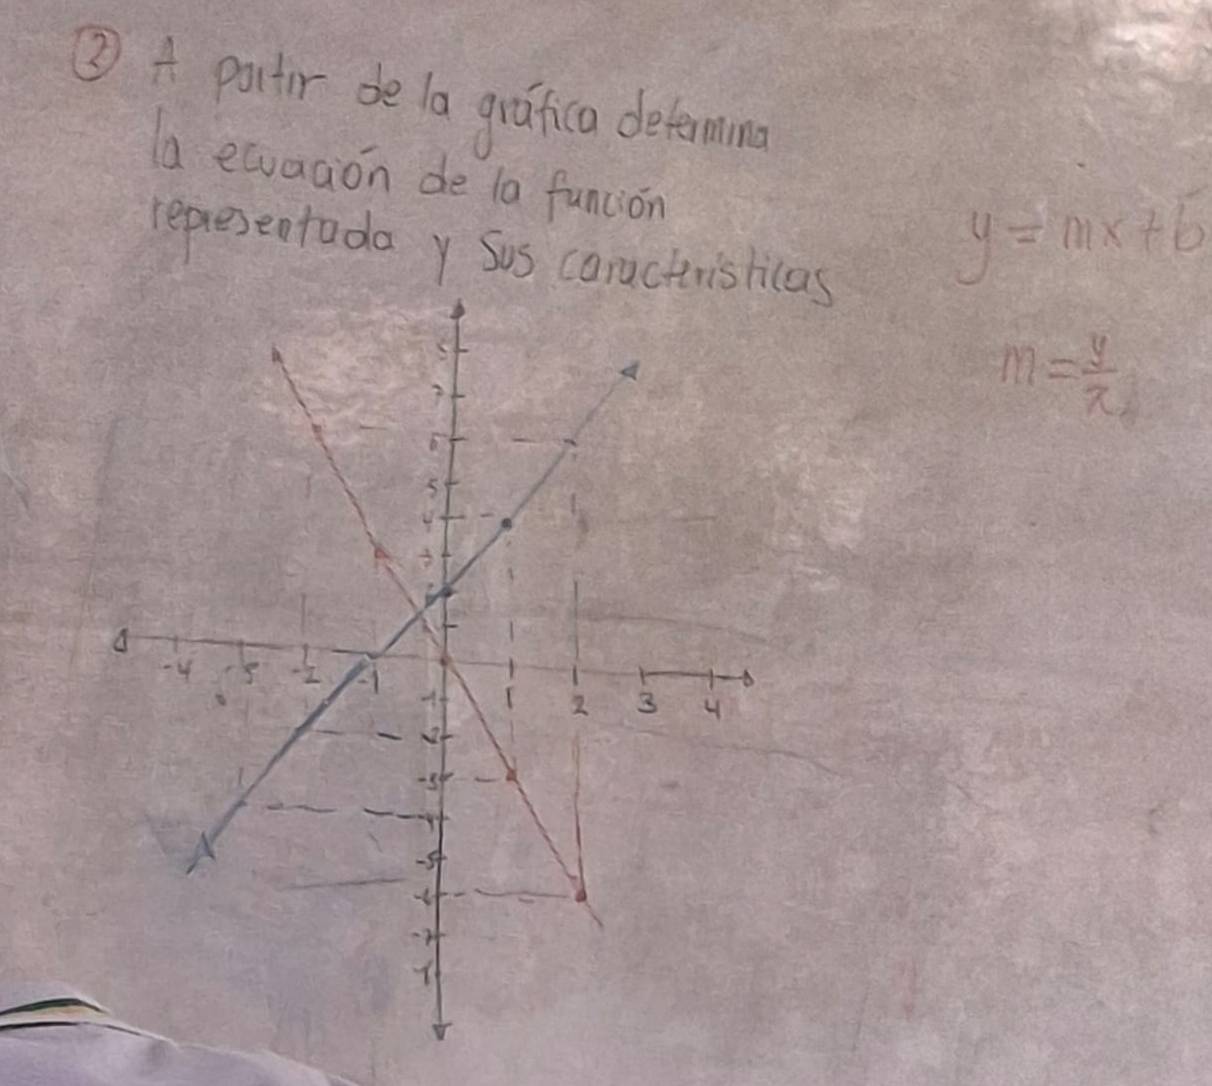 ② A partir de la gráfica determina
la ecuación de la función
representada y sus características
y = mx + b
m = y/x
8
7
6
5
4
3
2
-4 -3 -2 -1 1 2 3 4
-1
-2
-3
-4
-5
-6
-7